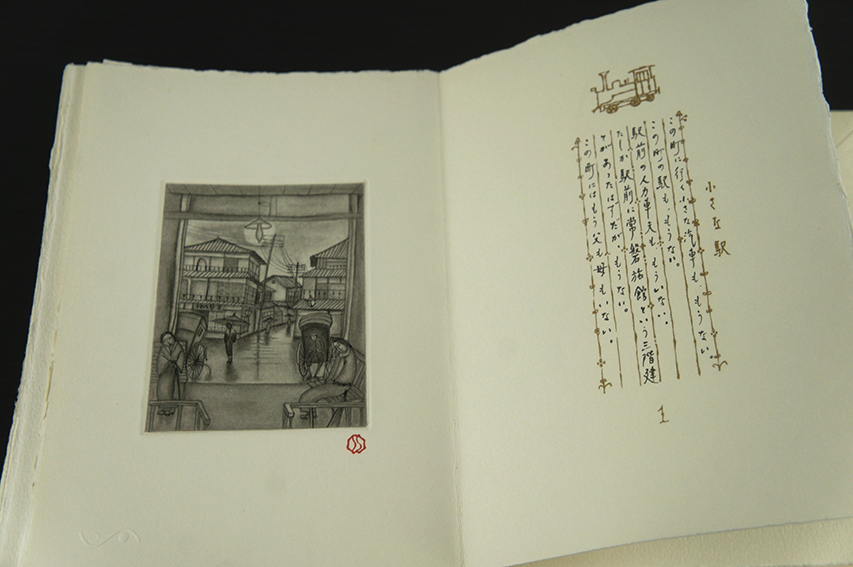 小さな駅
この町に行く小さな汽車も、もうない。
この町の駅も、もうない。
駅前の人力車夫も、もういない。
たしか駅前に常磐旅館という三階建
てがあったはずだが、もうない。
この町にはもう父も母もいない。
1